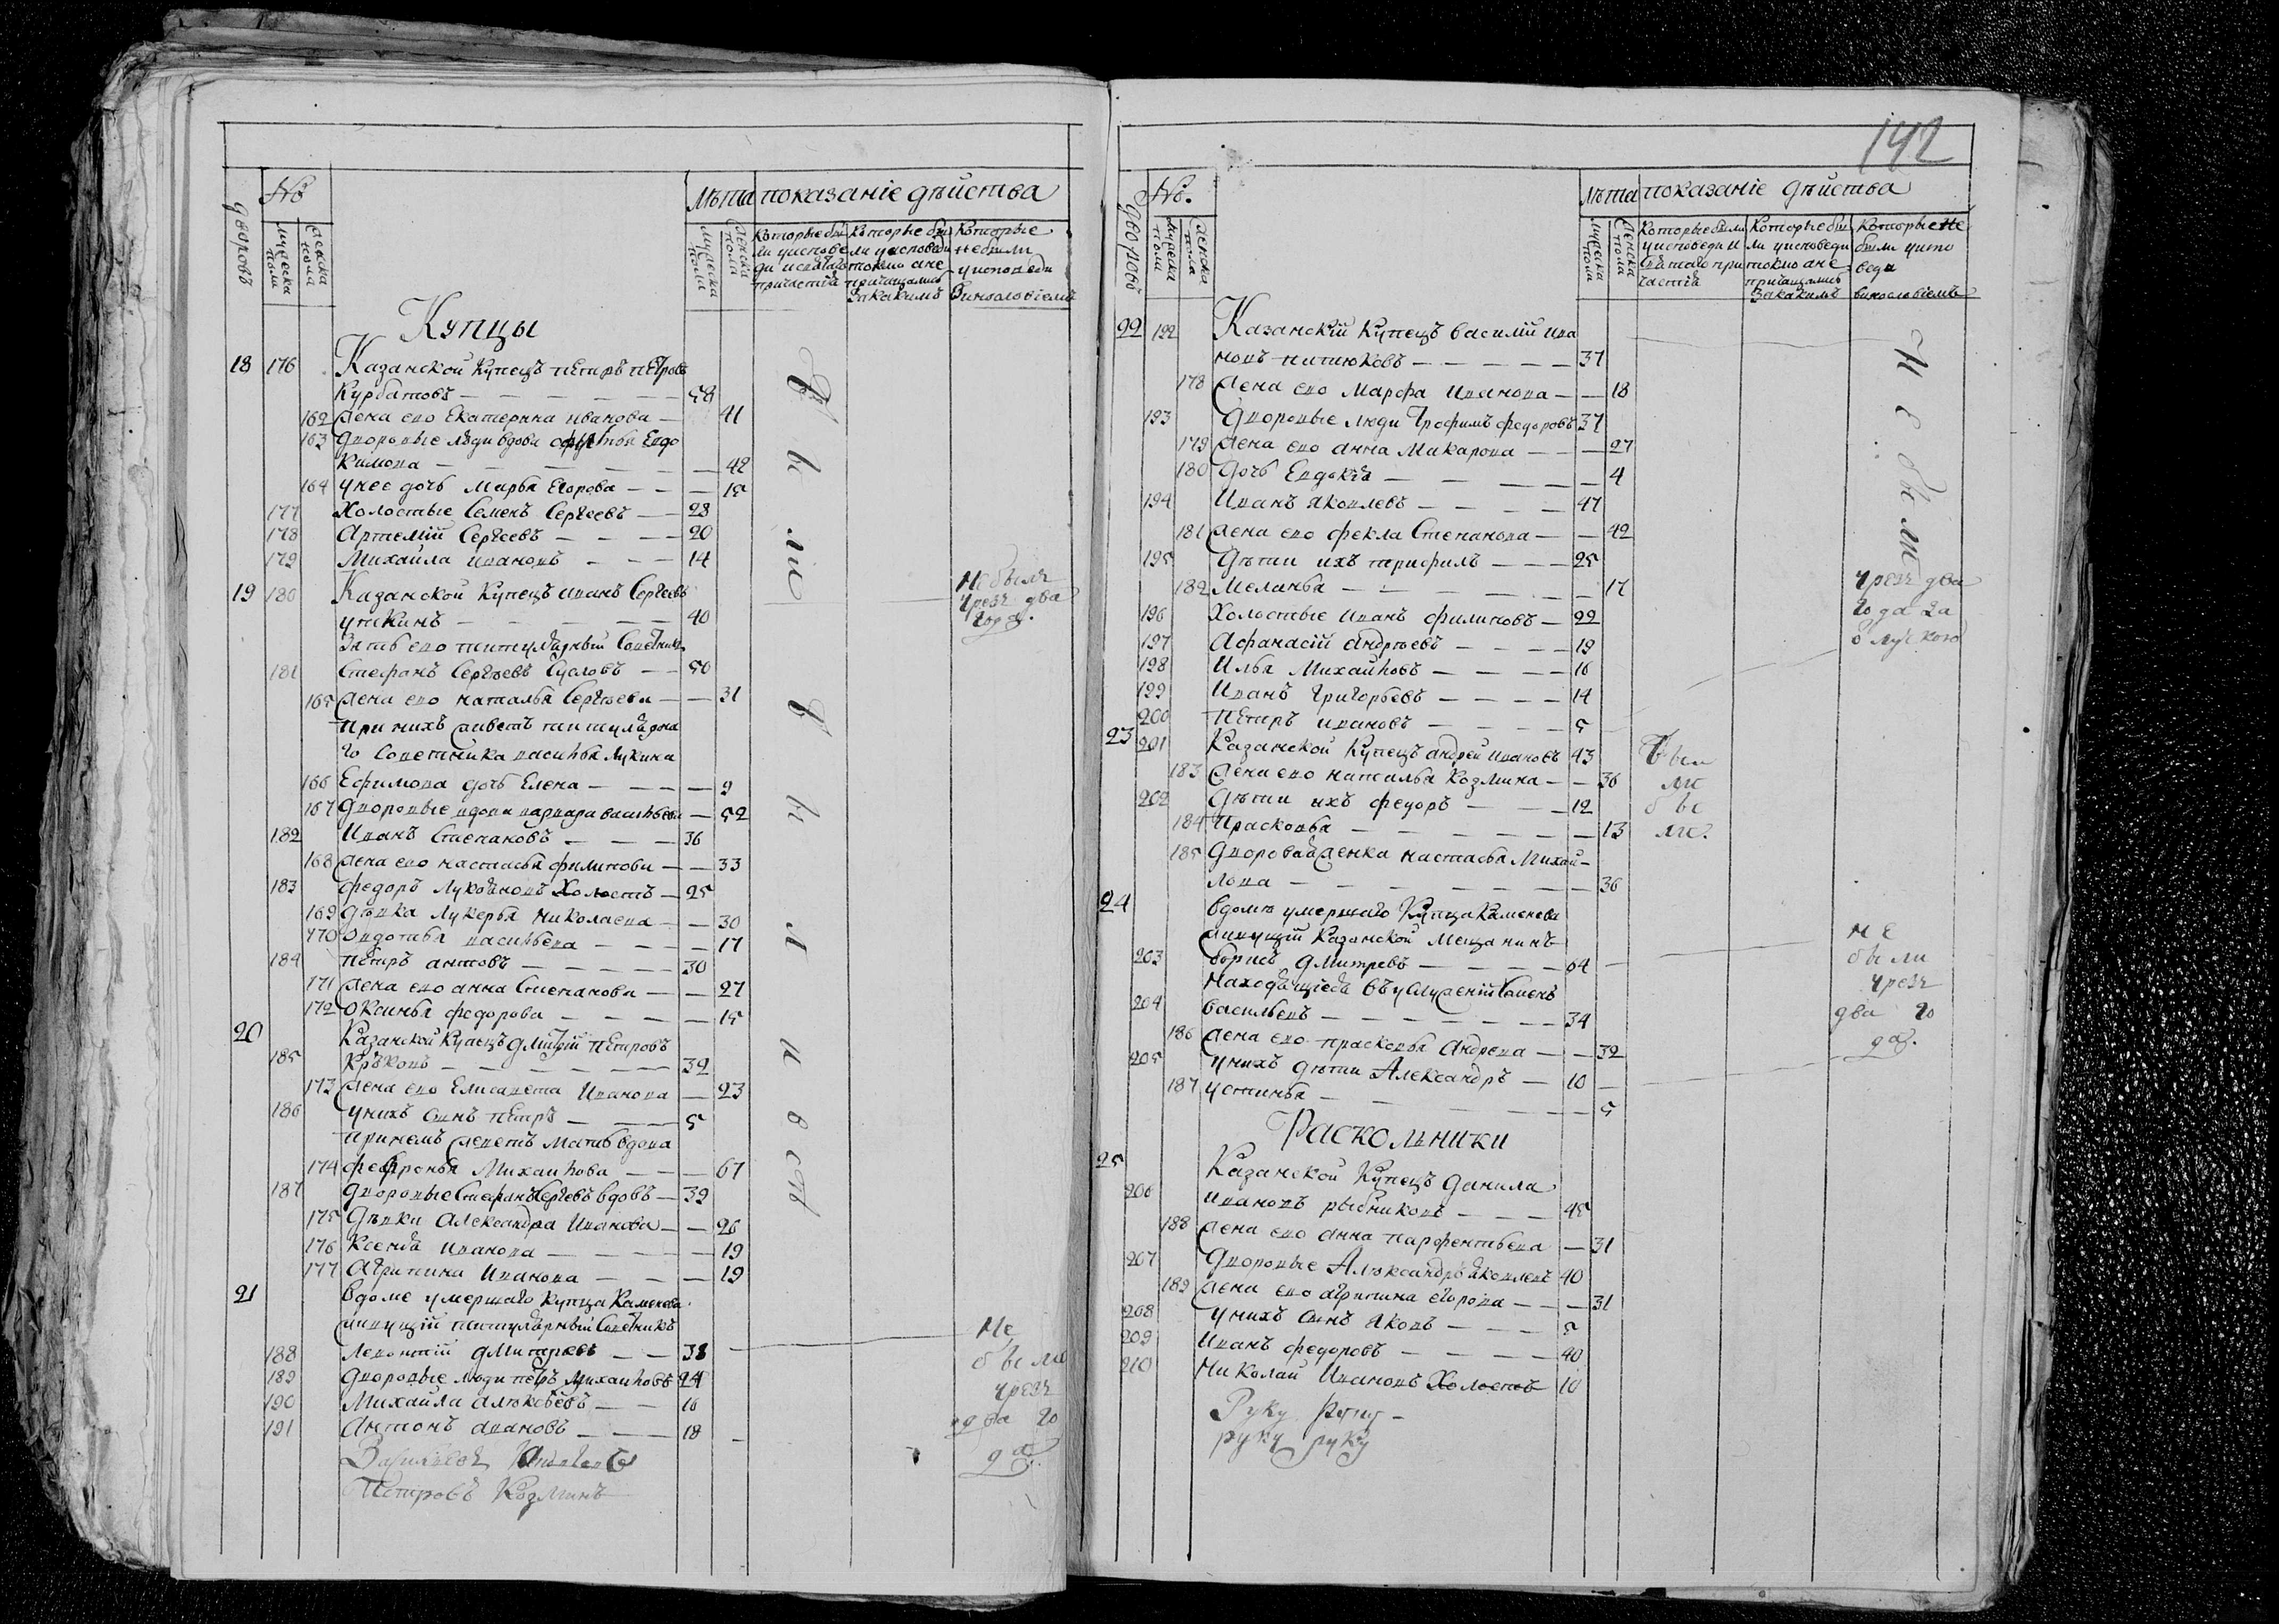 №
лѣта показанiе дѣйства
дворовъ
мужеска пола
женска пола
мужеска пола
женска пола
Которые были у исповеди и святаго причастiя
Которые были у исповеди токмо а не причащались и за какимъ
Которые не были у исповеди винословiемъ
Купцы
18 176 Казанской Купецъ Петръ Петровъ
Курбатовъ — 58
162 жена ево Екатерина иванова — 41
163 дворовые люди вдова Евдо
кимова — 42
164 у нее дочь Марья Егорова — 15
177 Холостые Семенъ Сергеевъ — 28
178 Артемiй Сергеевъ — 20
179 Михайла ивановъ — 14
19 180 Казанской Купецъ иванъ Сергеевъ
40
не былъ
чрезъ два
года.
Зять ево титулярный Советникъ
181 Стефанъ Сергеевъ Сусловъ — 50
165 жена ево наталья Сергеева — 31
При нихъ живетъ титулярна
го Советника василья Лукина
166 Ефимова дочь Елена — 9
167 дворовые вдова варвара васильева — 52
182 Иванъ Степановъ — 36
168 жена ево настасья филипова — 33
183 федоръ Лукояновъ Холостъ — 25
169 дѣвка Лукерья николаева — 30
170 Федотья васильева — 17
184 Петръ антовъ — 30
171 жена ево анна Степанова — 27
172 Оксинья федорова — 15
20 Казанской Купецъ дмитрiй Петровъ
185 Крюковъ — 32
173 жена ево Елисавета Иванова — 23
186 у нихъ сынъ Петръ — 5
При немъ живетъ мать вдова
174 февронья Михайлова — 67
187 дворовые Стефанъ Сергеевъ вдовъ — 39
175 дѣвки Александра Иванова — 26
176 Ксенья Иванова — 19
177 Агрипина Иванова — 19
21 в доме умершаго купца Каменева
живущiй титулярный Советникъ
188 Леонтiй дмитрiевъ — 38
189 дворовые люди петръ Михайловъ 24
190 Михайла алексеевъ — 16
191 Антонъ ивановъ — 18
не
были
чрезъ
два го
да.
Петровъ Козминъ
были в
142
№.
лѣта показанiе дѣйства
дворовъ
мужеска пола
женска пола
мужеска пола
женска пола
Которые были у исповеди и святаго причастiя
Которые были у исповеди токмо а не причащались и за какимъ
Которые не были у исповеди
винословiемъ
22 192 Казанскiй Купецъ василiй ива
новъ — 37
178 жена ево Марфа Иванова — 18
193 дворовые люди Трофимъ федоровъ 37
179 жена ево анна Макарова — 27
180 дочь Евдокiя — 4
194 Иванъ Яковлевъ — 47
181 жена ево фекла Степанова — 42
195 дѣти ихъ — 25
182 Меланья — 17
196 Холостые иванъ филиповъ — 22
197 Афанасiй андреевъ — 19
198 Илья Михайловъ — 16
199 Иванъ григорьевъ — 14
200 Петръ ивановъ — 5
не были
чрезъ два
года за
отлучкою
23 201 Казанской Купецъ андрей ивановъ 43
183 жена ево наталья Козмина — 36
202 дѣти ихъ федоръ — 12
184 Прасковья — 13
185 дворовая женка настасья Михай-
лова — 36
были
были
24 в доме умершаго Купца Каменева
живущiй Казанской Мещанинъ
203 борисъ дмитревъ — 64
находящiеся въ услуженiи Семенъ
204 васильевъ — 34
186 жена ево прасковья андреева — 32
205 у нихъ дети Александръ — 10
187 устинья — 5
не
были
чрезъ
два го
да.
Раскольники
25 Казанской Купецъ данила
206 ивановъ рыбниковъ — 45
188 жена ево анна парфентьева — 31
207 дворовые Александръ яковлевъ 40
189 жена ево агрипина егорова — 31
208 у нихъ сынъ яковъ — 5
209 Иванъ федоровъ — 40
210 николай Ивановъ Холостъ 10
Руку
руку руку